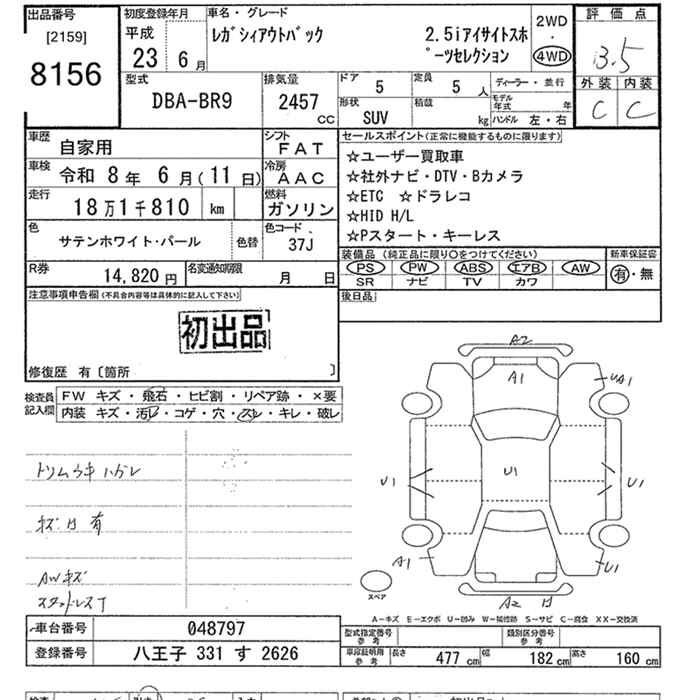 出品番号
[2159]
8156
初度登録年月
平成
23 6 月
車名・グレード
ﾚｶﾞｼｨｱｳﾄﾊﾞｯｸ
2.5iアイサイトスホ
ﾟーツセレクション
2WD
・
4WD
評価点
3.5
外装 内装
C C
型式
DBA-BR9
排気量
2457
cc
ドア
5
定員
5 人
ディーラー・並行
形状
SUV
積載
kg
モデル年式 年
ハンドル 左・右
車歴
自家用
シフト
FAT
車検
令和 8 年 6 月 (11 日)
冷房
AAC
走行
18 万 1 千 810 km
燃料
ガソリン
色
サテンホワイト・パール
色替
色コード
37J
R券
14,820 円
名変通知期限
月 日
セールスポイント(正常に機能するものに限ります)
☆ユーザー買取車
☆社外ナビ・DTV・Bカメラ
☆ETC ☆ドラレコ
☆HID H/L
☆Pスタート・キーレス
装備品 (純正品に限り〇をつけてください)
PS PW ABS エアB AW
SR ナビ TV カワ
新車保証書
有・無
後日品
注意事項申告欄 (不具合内容等は具体的に記入して下さい)
初出品
修復歴 有〔箇所 〕
検査員記入欄
FW キズ・飛石・ヒビ割・リペア跡・×要
内装 キズ・汚レ・コゲ・穴・スレ・キレ・破レ
トリムウキ ハガレ
キズ 凹 有
AWキズ
スタッドレスT
A2
A1
UA1
U1
U1
U1
A1
U1
A2 凹
スペア
A-キズ E-エクボ U-凹み W-補修跡 S-サビ C-腐食 XX-交換済
車台番号
048797
登録番号
八王子 331 す 2626
型式指定番号
参考
類別区分番号
参考
車庫証明用
参考
長さ 477 cm
幅 182 cm
高さ 160 cm